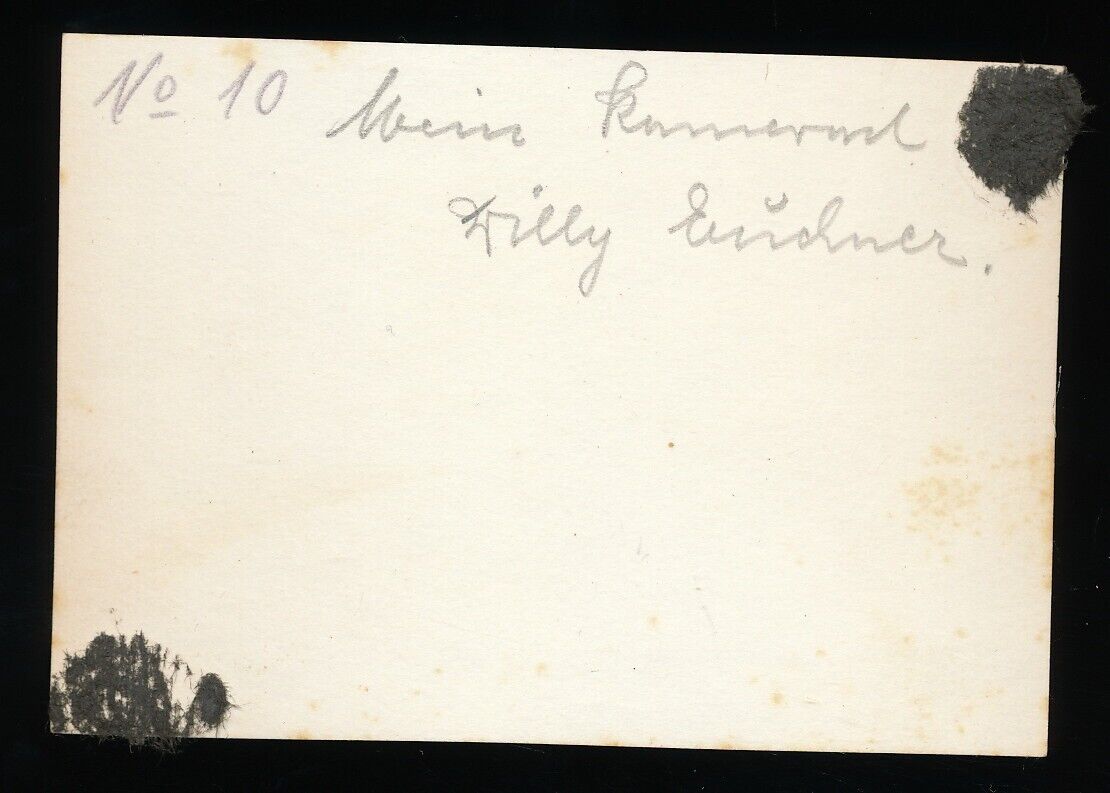 No 10 Mein Kamerad
Willy